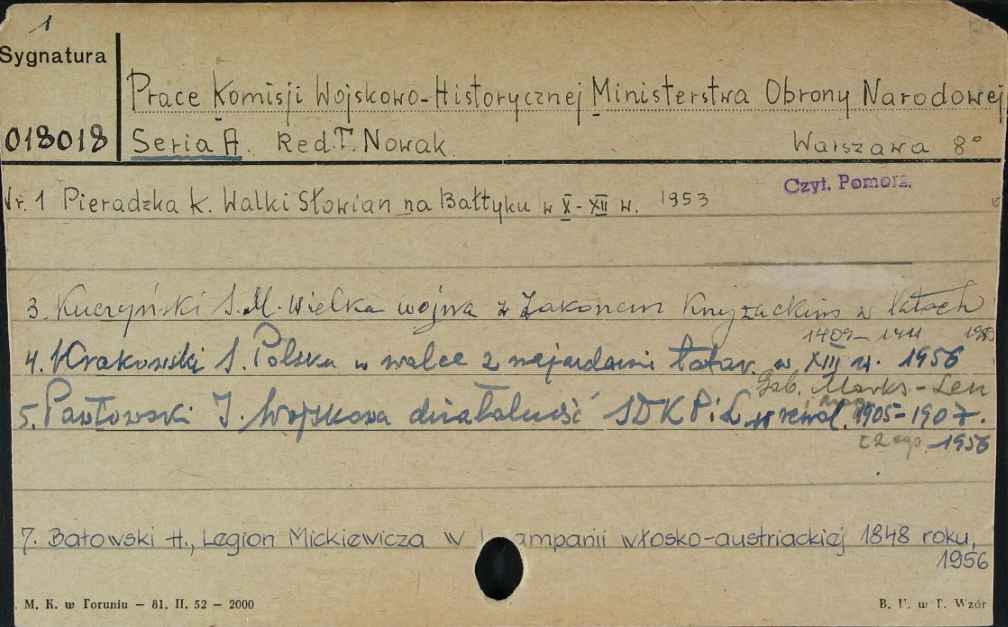 1
Sygnatura
018018
Prace Komisji Wojskowo-Historycznej Ministerstwa Obrony Narodowej
Seria A. Red. T. Nowak. Warszawa 8°
Czyt. Pomorz.
Nr. 1 Pieradzka K. Walki Słowian na Bałtyku w X-XII w. 1953
3. Kuczyński S.M. Wielka wojna z Zakonem Krzyżackim w latach
1409-1411
4. Krakowski S. Polska w walce z najazdami tatar. w XIII w. 1956
Gab. Marks-Len
5. Pawłowski I. Wojskowa działalność SDKPiL w rewol. 1905-1907.
i mag.
z 2 egz. 1956
7. Batowski H., Legion Mickiewicza w kampanii włosko-austriackiej 1848 roku,
1956
M. K. w Toruniu – 81. II. 52 – 2000
B. U. w T. Wzór